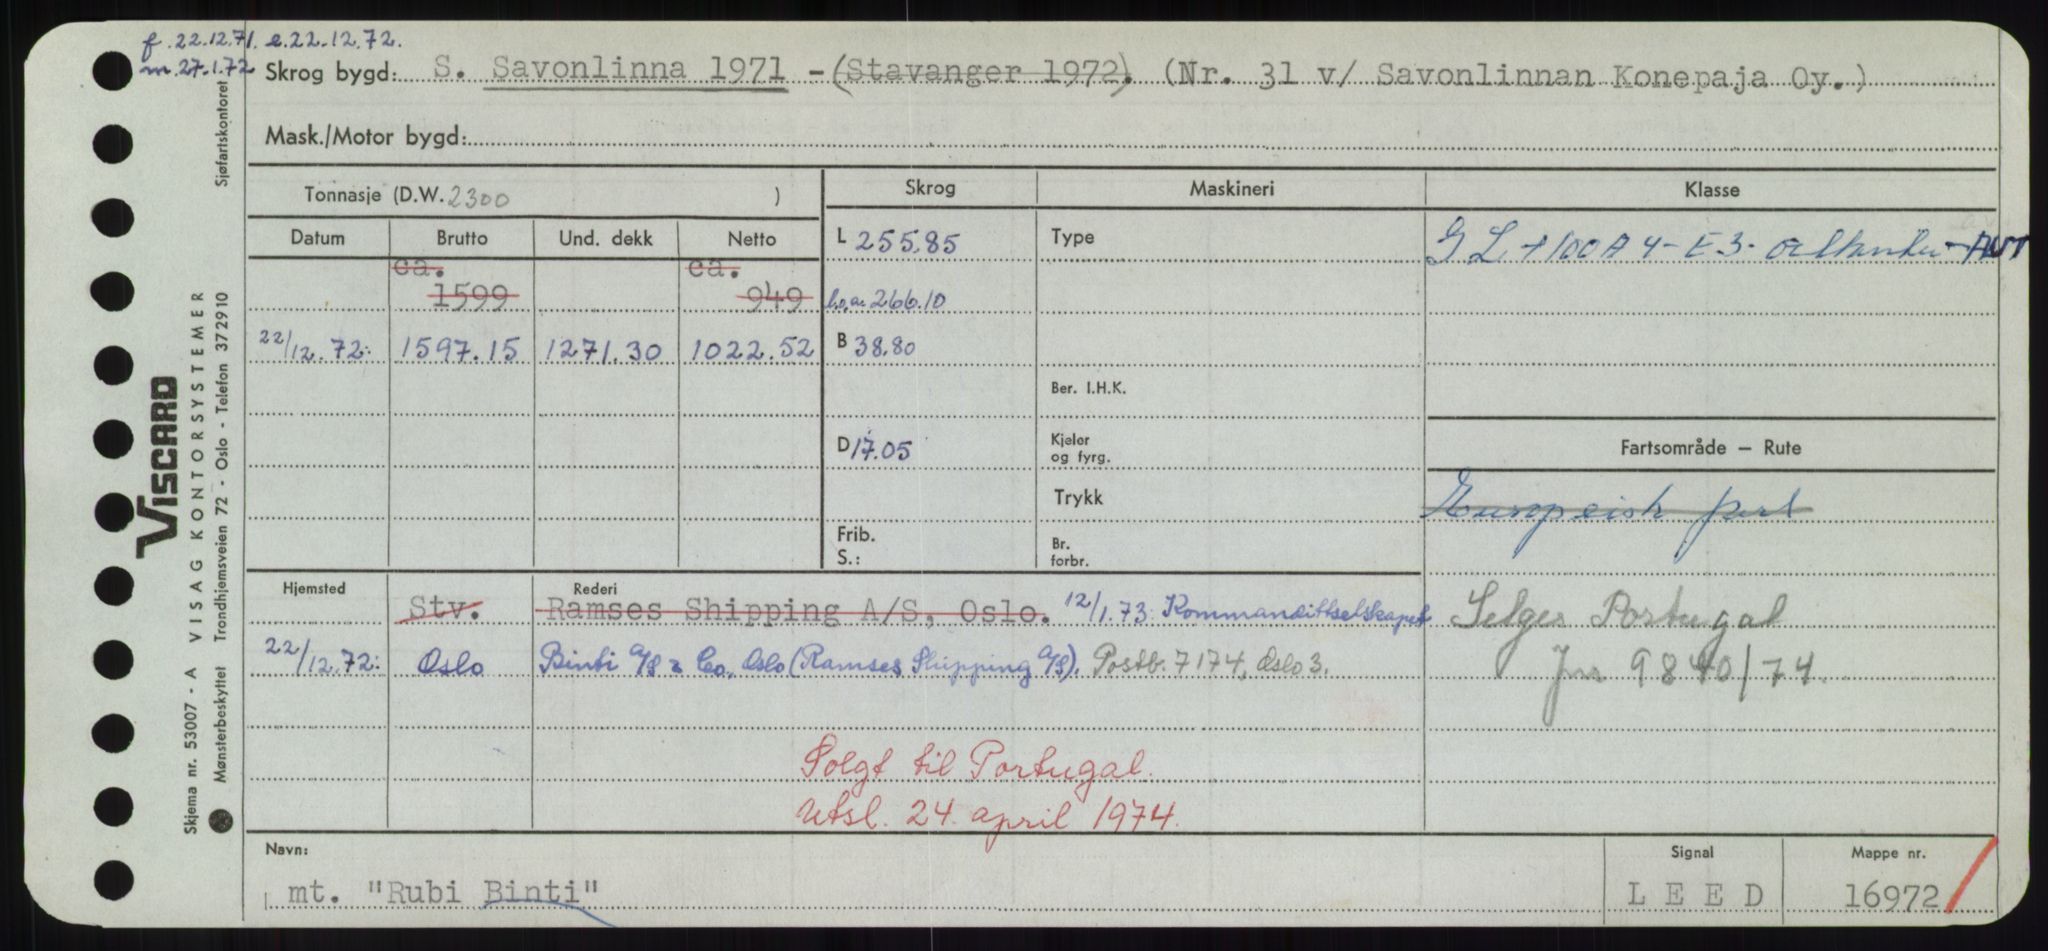 f. 22.12.71. e.22.12.72.
m.27.1.72
Skrog bygd: S. Savonlinna 1971 -(Stavanger 1972). (Nr. 31 v/ Savonlinnan Konepaja Oy.)
Mask./Motor bygd:
Tonnasje (D.W. 2300 )
Skrog
Maskineri
Klasse
Datum
Brutto
Und. dekk
Netto
L 255.85
Type
GL + 100 A 4 - E3 - oiltanker - AUT
ca.
1599
ca.
949
l.o.a. 266.10
22/12.72: 1597.15 1271.30 1022.52
B 38.80
Ber. I.H.K.
D 17.05
Kjeler
og fyrg.
Fartsområde — Rute
Trykk
Europeisk fart
Frib.
S.:
Br.
forbr.
Hjemsted
Rederi
Stv. Ramses Shipping A/S, Oslo. 12/1.73: Kommandittselskapet
22/12.72: Oslo Binti A/S & Co, Oslo (Ramses Shipping A/S). Postb. 7174, Oslo 3.
Selges Portugal
Jnr 9840/74.
Solgt til Portugal.
Utsl. 24. april 1974.
Navn:
mt. "Rubi Binti"
Signal
LEED
Mappe nr.
16972
Skjema nr. 53007 - A VISAG KONTORSYSTEMER
Mønsterbeskyttet Trondhjemsveien 72 - Oslo - Telefon 372910
Sjøfartskontoret
VISCARD